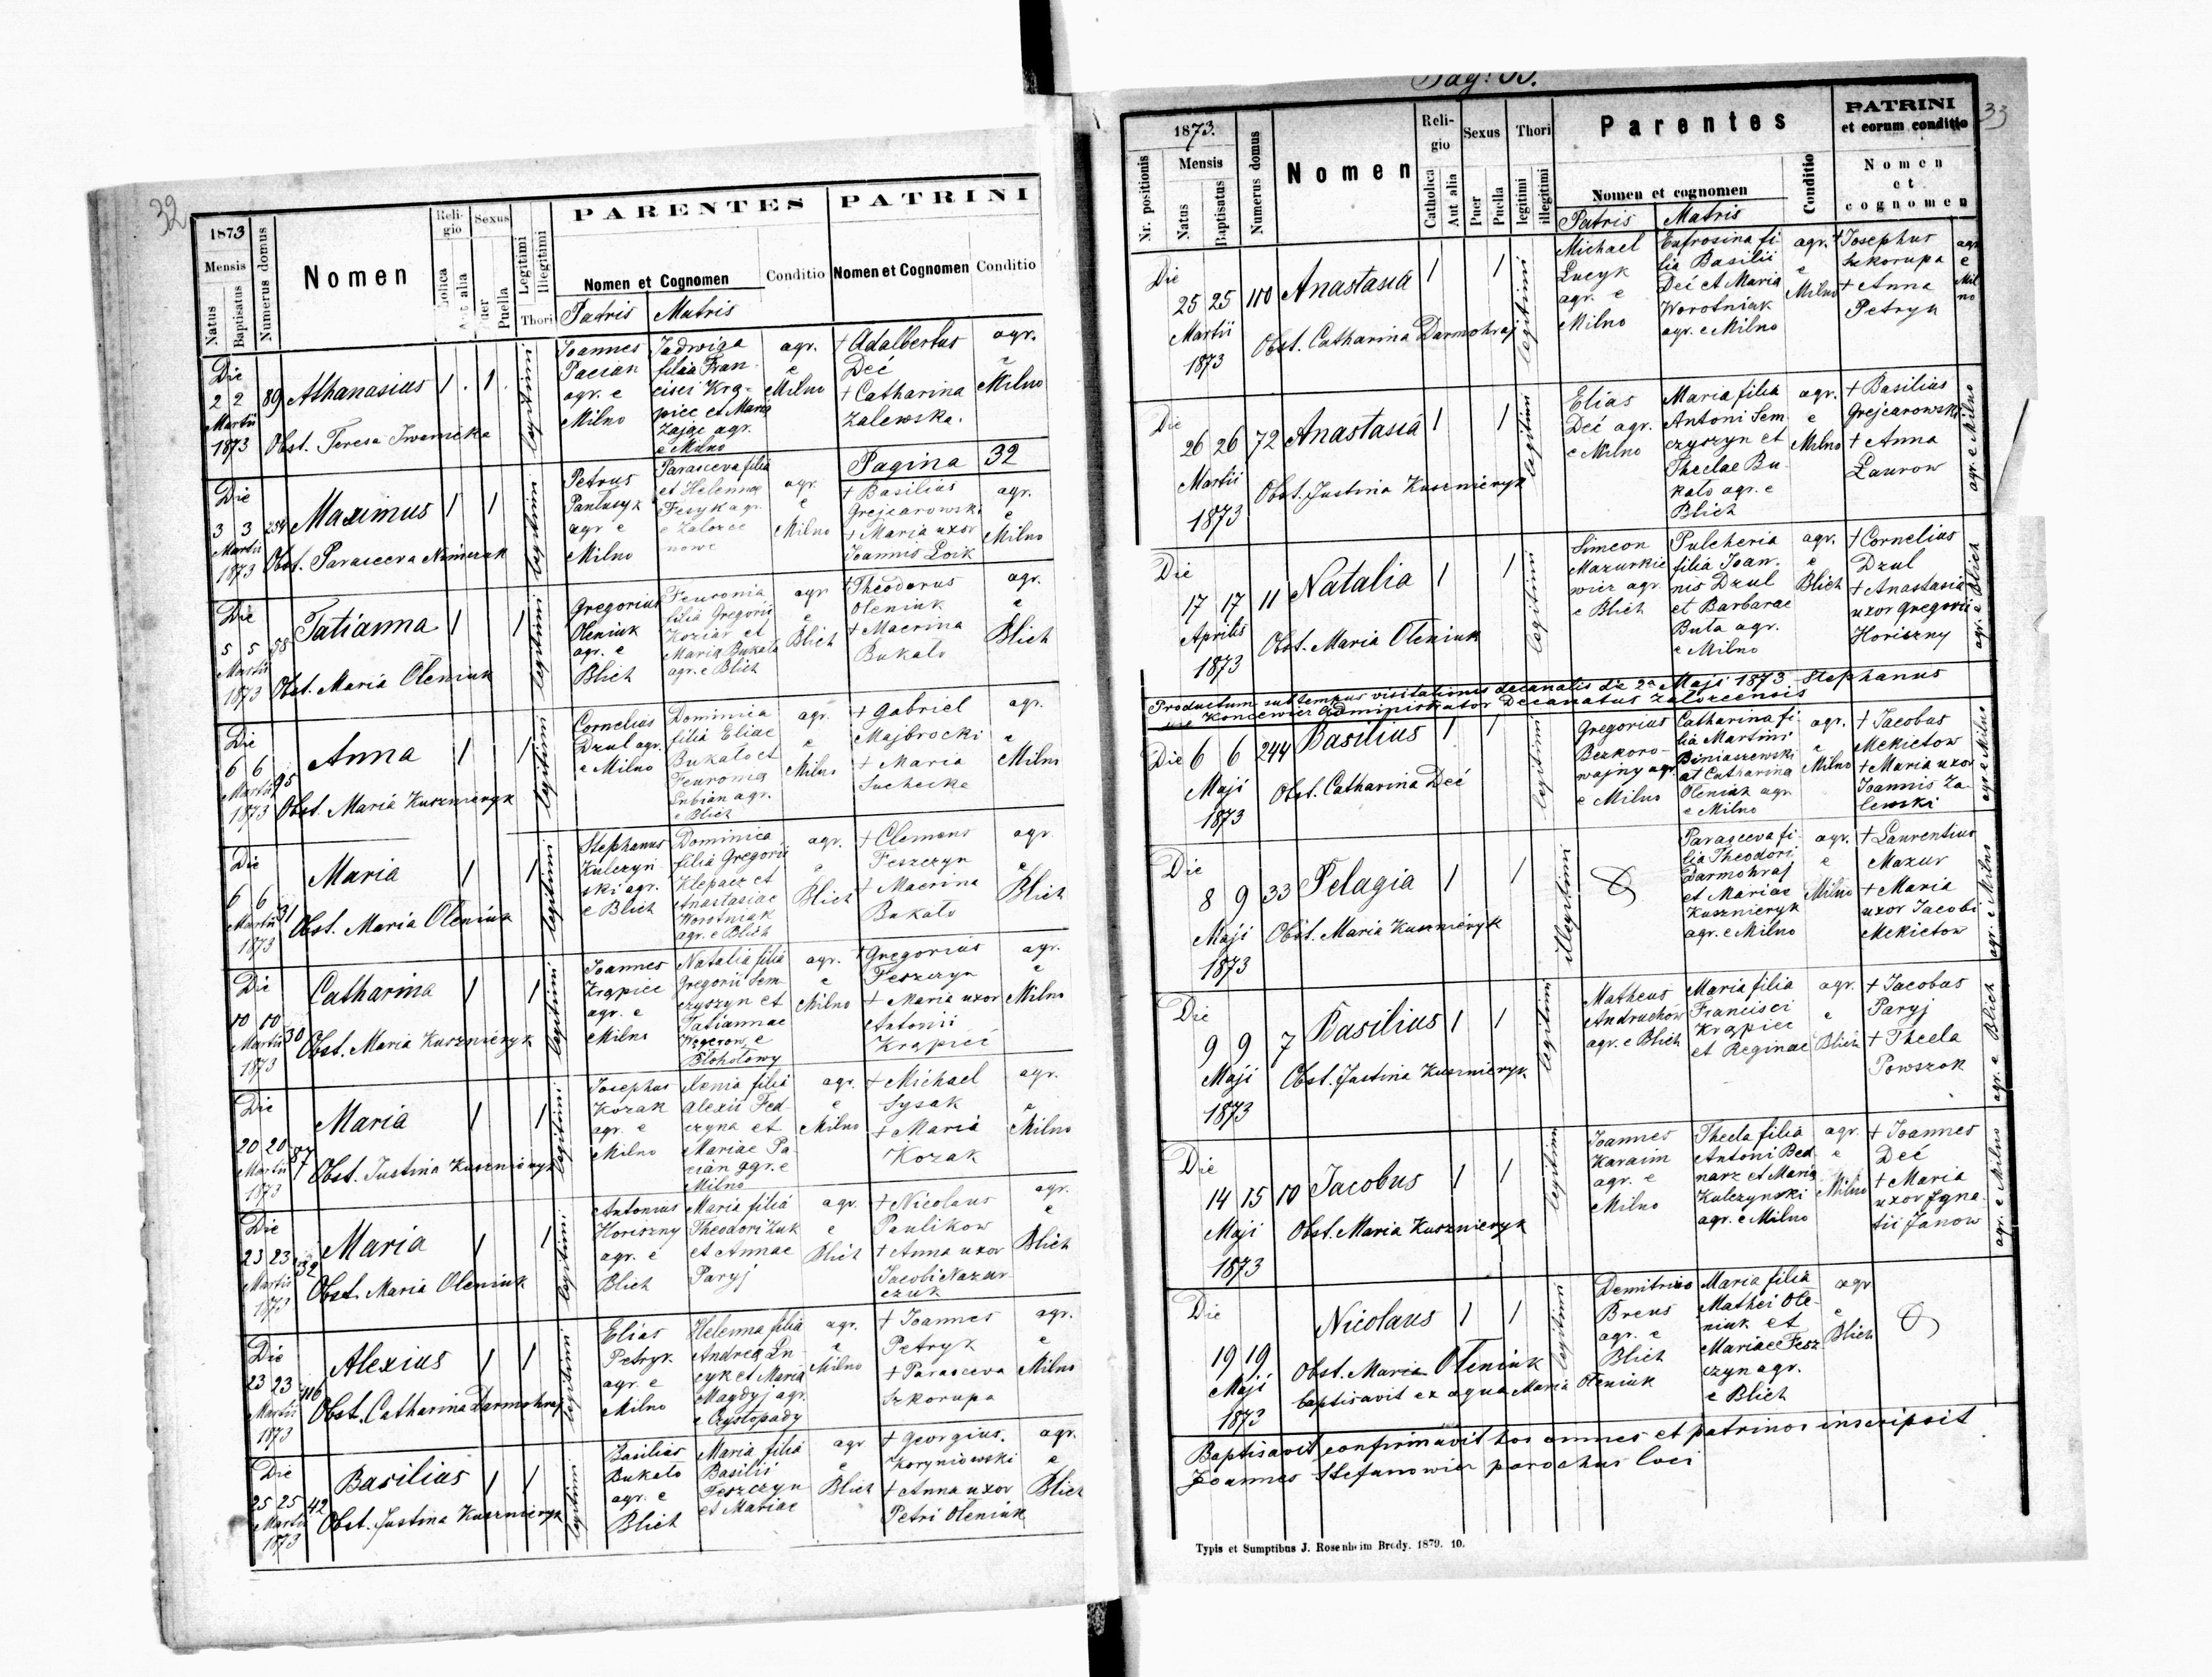 32
1873
Mensis
Natus
Baptisatus
Numerus domus
Nomen
Reli-
gio
Sexus
Puella
Legitimi
Illegitimi
Thori
PARENTES
Nomen et Cognomen
Patris Matris
Conditio
PATRINI
Nomen et Cognomen
Conditio
Die
2 2 89 Athanasius 1 1
Martii
1873 Obst. Teresa Iwanicka
legitimi
Joannes
Pacian
agr. e
Milno
Jadwiga
filia Fran-
cisci Krą-
piec et Maria
Zając agr.
e Milno
agr.
e
Milno
† Adalbertus
Deć
† Catharina
Zalewska.
agr.
e
Milno
Pagina 32
Die
3 3 234 Maximus 1 1
Martii
1873 Obst. Parasceva
legitimi
Petrus
agr e
Milno
Parasceva filia
et Helennae
Fesyk agr.
e Zalozce
nowe
agr.
e
Milno
† Basilius
Grejcarowski
† Maria uxor
Joannis Loik
agr.
e
Milno
Die
5 5 38 Tatianna 1 1
Martii
1873 Obst. Maria Oleniuk
legitimi
Gregorius
Oleniuk
agr. e
Blich
Feuronia
filia Gregorii
Koziar et
Maria Bukało
agr. e Blich
agr
e
Blich
† Theodorus
Oleniuk
† Macrina
Bukało
agr.
e
Blich
Die
6 6 95 Anna 1 1
Martii
1873 Obst. Maria Kusznieryk
legitimi
Cornelius
Dzul agr.
e Milno
Dominica
filia Eliae
Bukało et
Feuronia
Lubian agr.
e Blich
agr.
e
Milno
† Gabriel
Majbrocki
† Maria
Suchecka
agr.
e
Milno
Die
6 6 31 Maria 1 1
Martii
1873 Obst. Maria Oleniuk
legitimi
Stephanus
Kulczyń
ski agr.
e Blich
Dominica
filia Gregorii
Klepacz et
Anastasiae
Worotniak
agr. e Blich
agr.
e
Blich
† Clemens
Feszczyn
† Macrina
Bukało
agr.
e
Blich
Die
10 10 30 Catharina 1 1
Martii
1873 Obst. Maria Kusznieryk
legitimi
Joannes
Krąpiec
agr. e
Milno
Natalia filia
Gregorii Sem
czyszyn et
Tatiannae
Węgerow e
Błohołowy
agr.
e
Milno
† Gregorius
Feszczyn
† Maria uxor
Antonii
Krąpiec
agr.
e
Milno
Die
20 20 87 Maria 1 1
Martii
1873 Obst. Justina Kusznieryk
legitimi
Josephus
Kozak
agr. e
Milno
Xenia filia
Alexii Fed-
czyna et
Mariae Pa-
cian agr. e
Milno
agr.
e
Milno
† Michael
Sysak
† Maria
Kozak
agr.
e
Milno
Die
23 23 32 Maria 1 1
Martii
1873 Obst. Maria Oleniuk
legitimi
Antonius
Horiszny
agr. e
Blich
Maria filia
Theodori Żuk
et Annae
Paryj
agr.
e
Blich
† Nicolaus
Paulikow
† Anna uxor
Jacobi Nazar-
czuk
agr.
e
Blich
Die
23 23 116 Alexius 1 1
Martii
1873 Obst. Catharina Darmohraj
legitimi
Elias
Petryk
agr. e
Milno
Helenna filia
Andrea Lu-
cyk et Maria
Magdyj agr.
e Czystopady
agr.
e
Milno
† Joannes
Petryk
† Parasceva
Szkorupa
agr.
e
Milno
Die
25 25 42 Basilius 1 1
Martii
1873 Obst. Justina Kusznieryk
legitimi
Basilius
Bukało
agr. e
Blich
Maria filia
Basilii
Feszczyn
et Mariae
agr
e
Blich
† Georgius
Koryniowski
† Anna uxor
Petri Oleniuk
agr.
e
Blich
Pag: 33.
33
Nr. positionis
1873.
Mensis
Natus
Baptisatus
Numerus domus
Nomen
Reli-
gio
Catholica
Aut alia
Sexus
Puer
Puella
Thori
legitimi
illegitimi
Parentes
Nomen et cognomen
Patris Matris
Conditio
PATRINI
et eorum conditio
Nomen
et
cognomen
Die
25 25 110 Anastasia 1 1
Martii
1873 Obst. Catharina Darmohraj
legitimi
Michael
Lucyk
agr. e
Milno
Eufrosina fi-
lia Basilii
Deć et Maria
Worotniak
agr. e Milno
agr.
e
Milno
† Josephus
Szkorupa
† Anna
Petryk
agr
e
Mil
no
Die
26 26 72 Anastasia 1 1
Martii
1873 Obst. Justina Kusznieryk
legitimi
Elias
Deć agr.
e Milno
Maria filia
Antoni Sem
czyszyn et
Theclae Bu-
kało agr. e
Blich
agr.
e
Milno
† Basilius
Grejcarowski
† Anna
Laurow
agr. e Milno
Die
17 17 11 Natalia 1 1
Aprilis
1873 Obst. Maria Oleniuk
legitimi
Simeon
Mazurkie
wicz agr.
e Blich
Pulcheria
filia Joan-
nis Dzul
et Barbarae
Buta agr.
e Milno
agr.
e
Blich
† Cornelius
Dzul
† Anastasia
uxor Gregorii
Horiszny
agr. e Blich
Productum sub tempus visitationis decanalis die 2a Maji 1873 Stephanus
Koncewicz Administrator Decanatus Zalozcensis
Die 6 6 244 Basilius 1 1
Maji
1873 Obst. Catharina Deć
legitimi
Gregorius
Bezkoro-
wajny agr.
e Milno
Catharina fi-
lia Martini
Biniaszewski
et Catharina
Oleniuk agr
e Milno
agr.
e
Milno
† Jacobus
Mekietow
† Maria uxor
Joannis Za-
lewski
agr. e Milno
Die
8 9 33 Pelagia 1 1
Maji
1873 Obst. Maria Kusznieryk
illegitimi
Parasceva fi-
lia Theodori
Darmohraj
et Mariae
Kusznieryk
agr. e Milno
agr.
e
Milno
† Laurentius
Mazur
† Maria
uxor Jacobi
Mekietow
agr. e Milno
Die
9 9 7 Basilius 1 1
Maji
1873 Obst. Justina Kusznieryk
legitimi
Matheus
Andruchow
agr. e Blich
Maria filia
Francisci
Krąpiec
et Reginae
agr.
e
Blich
† Jacobus
Paryj
† Thecla
Powszok
agr. e Blich
Die
14 15 10 Jacobus 1 1
Maji
1873 Obst. Maria Kusznieryk
legitimi
Joannes
Karaim
agr. e
Milno
Thecla filia
Antoni Bed
narz et Maria
Kulczynski
agr. e Milno
agr.
e
Milno
† Joannes
Deć
† Maria
uxor Igna-
tii Janow
agr. e Milno
Die
19 19 Nicolaus 1 1
Maji
1873 Obst. Maria Oleniuk
baptisavit ex aqua Maria Oleniuk
legitimi
Demitrius
Breus
agr. e
Blich
Maria filia
Mathei Ole-
niuk et
Mariae Fesz
czyn agr.
e Blich
agr
e
Blich
Baptisavit confirmavit hos omnes et patrinos inscripsit
Joannes Stefanowicz parochus loci
Typis et Sumptibus J. Rosenheim Brody. 1879. 10.